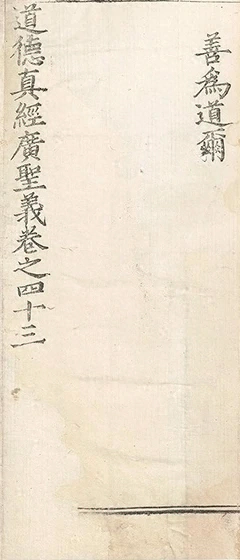 善爲道爾
道德真經廣聖義卷之四十三